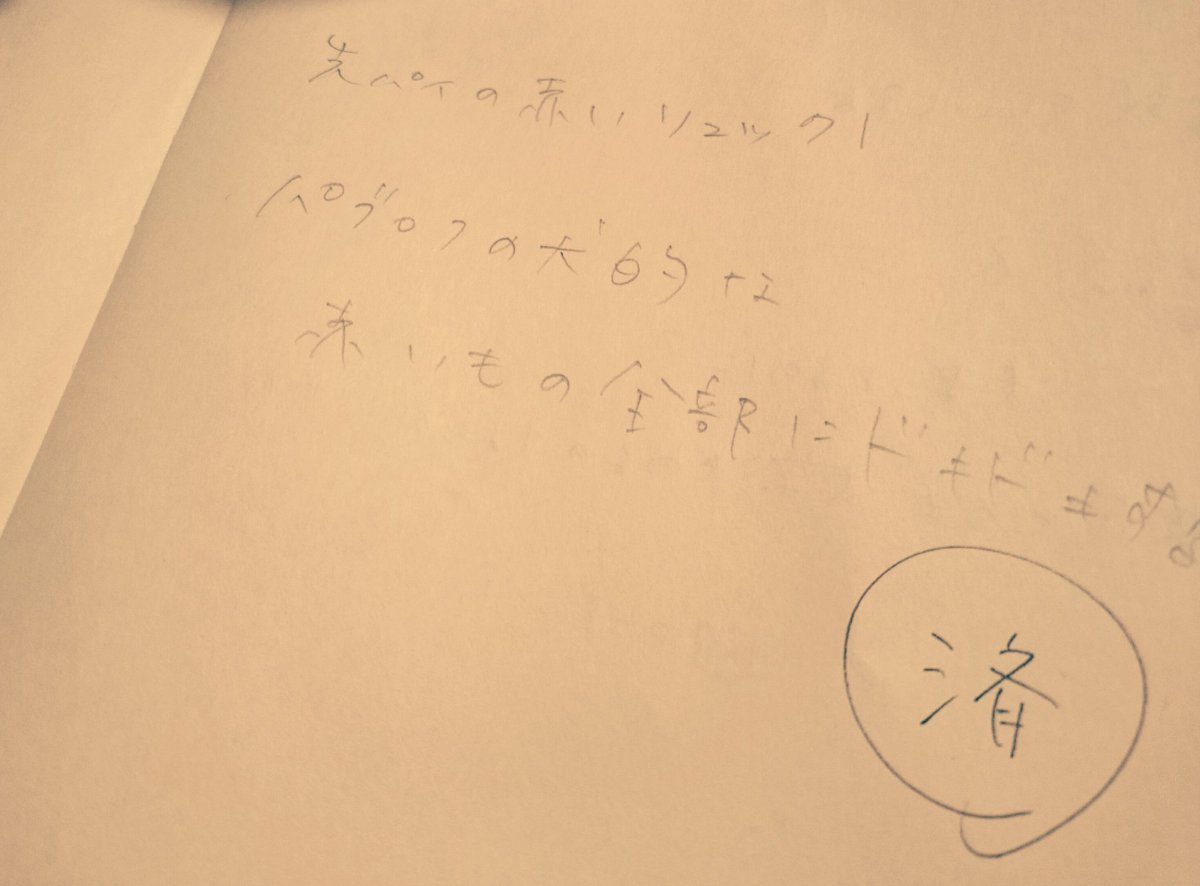 先パイの赤いリュック!
パブロフの犬的な
赤いもの全部にドキドキする
済